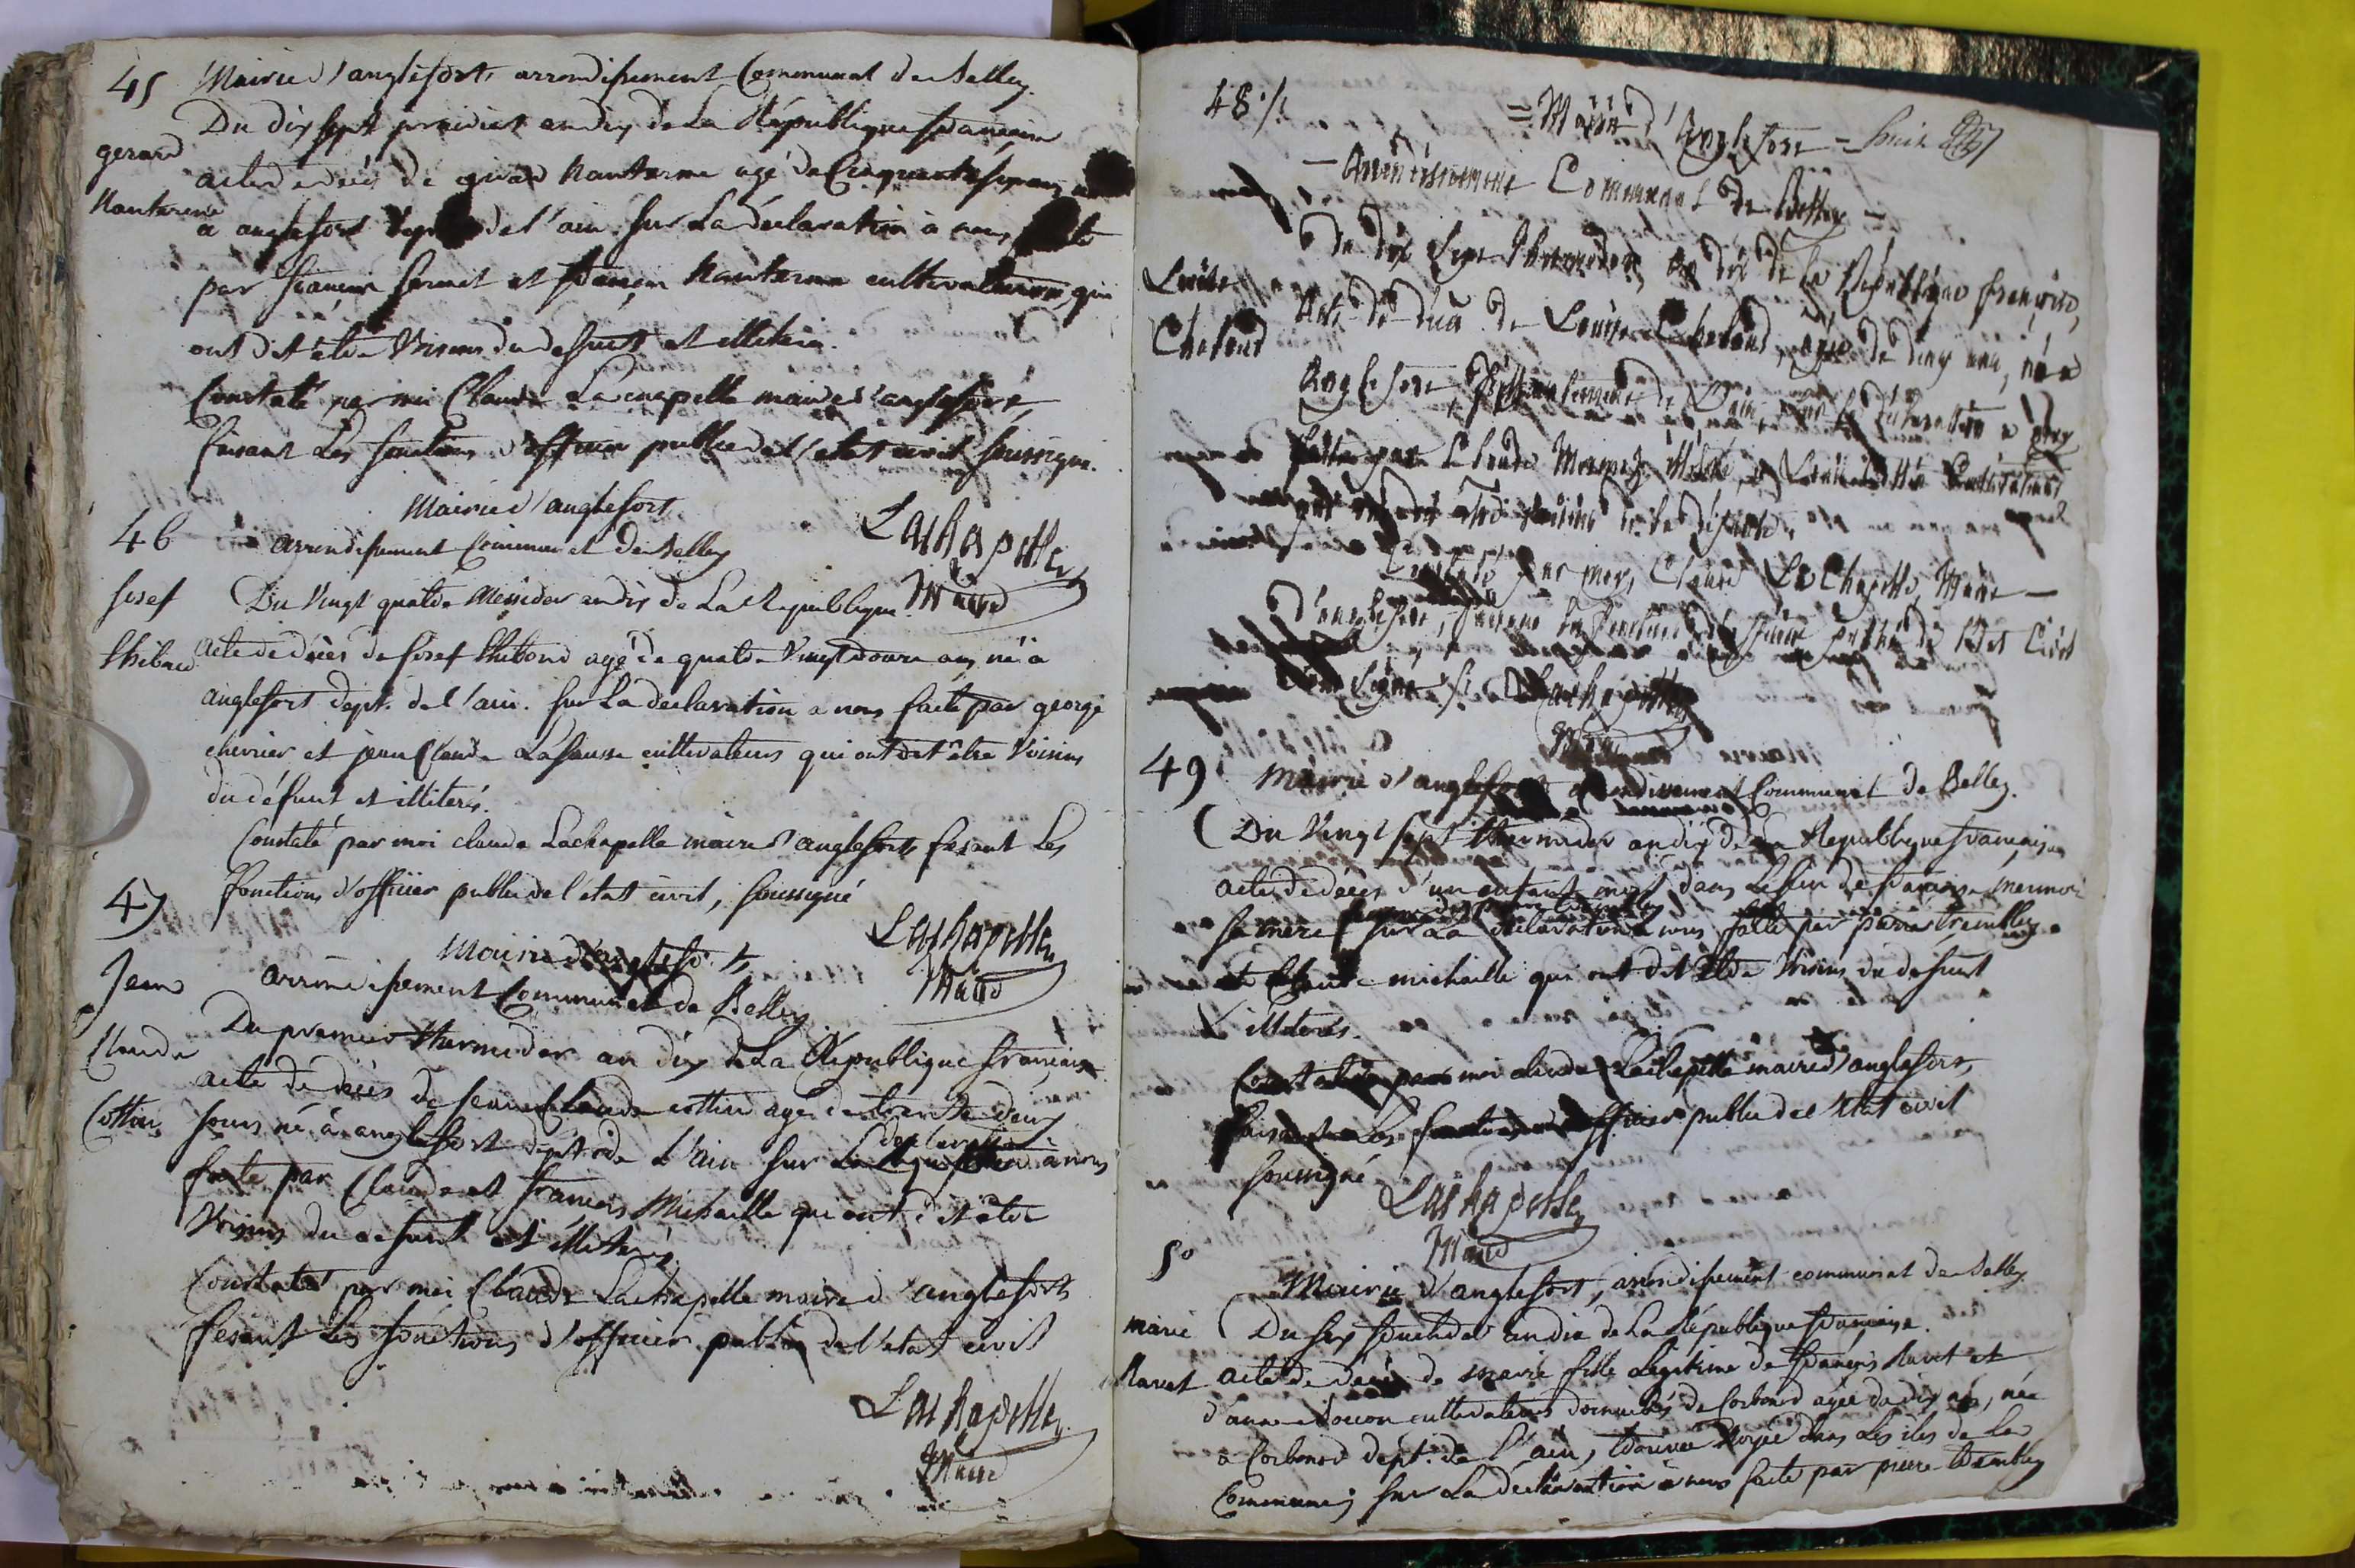 45 Mairie d'anglefort, arrondissement Communal de Belley.
Du dix sept prairial an dix de La République francaise
gerard
acte de décès de girard nanterme agé de Cinquante
Nanterme
a anglefort dept de l'ain. sur La déclaration a nous faite
par francois et francois nanterme cultivateurs qui
ont dit être Voisins du defunt et illiteré.
Constaté par moi Claude Lachapelle maire d'anglefort,
faisant Les fonctions d'officier public de l'etat civil soussigné.
Lachapelle
Maire
46
Mairie d'anglefort
arrondisement Communal de Belley
Josef
Du Vingt quatre Messidor an dix de La Republique
thiboud
acte de décès de Josef thiboud agé de quatre Vingt douze ans, né à
anglefort dept. de l'ain. sur La declaration a nous faite par george
chevrier et jean Claude Lafausse cultivateurs qui ont dit être Voisins
du défunt et illiterés.
Constaté par moi claude Lachapelle maire d'anglefort, fesant Les
fonctions d'officier public de l'etat civil, soussigné
Lachapelle
Maire
47
Mairie d'anglefort,
Jean
arrondisement Communal de Belley
Claude
Du premier thermidor an dix de La République francaise
acte de décès de Jean Claude cottin agé de trente deux
Cottin
jours né à anglefort dept de L'ain sur La declaration à nous
faite par Claude et francois Michaille qui ont dit être
Voisins du defunt et illiterés
Constaté par moi Claude Lachapelle maire d'anglefort
fesant Les fonctions d'officier public de l'etat civil
Lachapelle
Maire
48 ./.
= Mairie d'Anglefort =
- Arrondissement Communal de Belley -
du dix sept thermidor, an dix de la République française,
Louise
Acte de décès de Louise Chaboud, agée de cinq ans, née a
Chaboud
Anglefort, Département de l'Ain, sur la déclaration a nous
faitte par Claude
qui ont dit être voisins de la défunte.
Constaté par moy, Claude La Chapelle, Maire -
d'anglefort, faisant les fonctions d'officier public de l'Etat Civil
soussigné ./. Lachapelle
Maire
49
Mairie d'anglefort arrondissement Communal de Belley.
Du Vingt sept thermidor an dix de La Republique francaise
acte de décès d'un enfant mort dans Le sein de francoise
femme de pierre trembley
sa mere sur La declaration a nous faite par pierre trembley
et Claude michaille qui ont dit être Voisins du defunt
& illiterés.
Constaté par moi claude Lachapelle maire d'anglefort,
faisant Les fonctions d'officier public de l'etat civil
soussigné
Lachapelle
Maire
50
Mairie d'anglefort, arrondisement communal de Belley
marie
Du six fructidor an dix de La République francaise.
Ravet
acte de décès de marie fille Legitime de francois Ravet et
d'anne cultivateurs domiciliés de Corbonod agée de dix ans, née
a Corbonod dept. de L'ain, trouvée noyée dans Les iles de La
Commune; sur La declaration a nous faite par pierre trembley